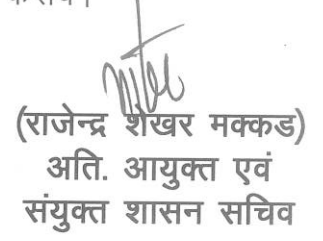 (राजेन्द्र शेखर मक्कड)
अति. आयुक्त एवं
संयुक्त शासन सचिव